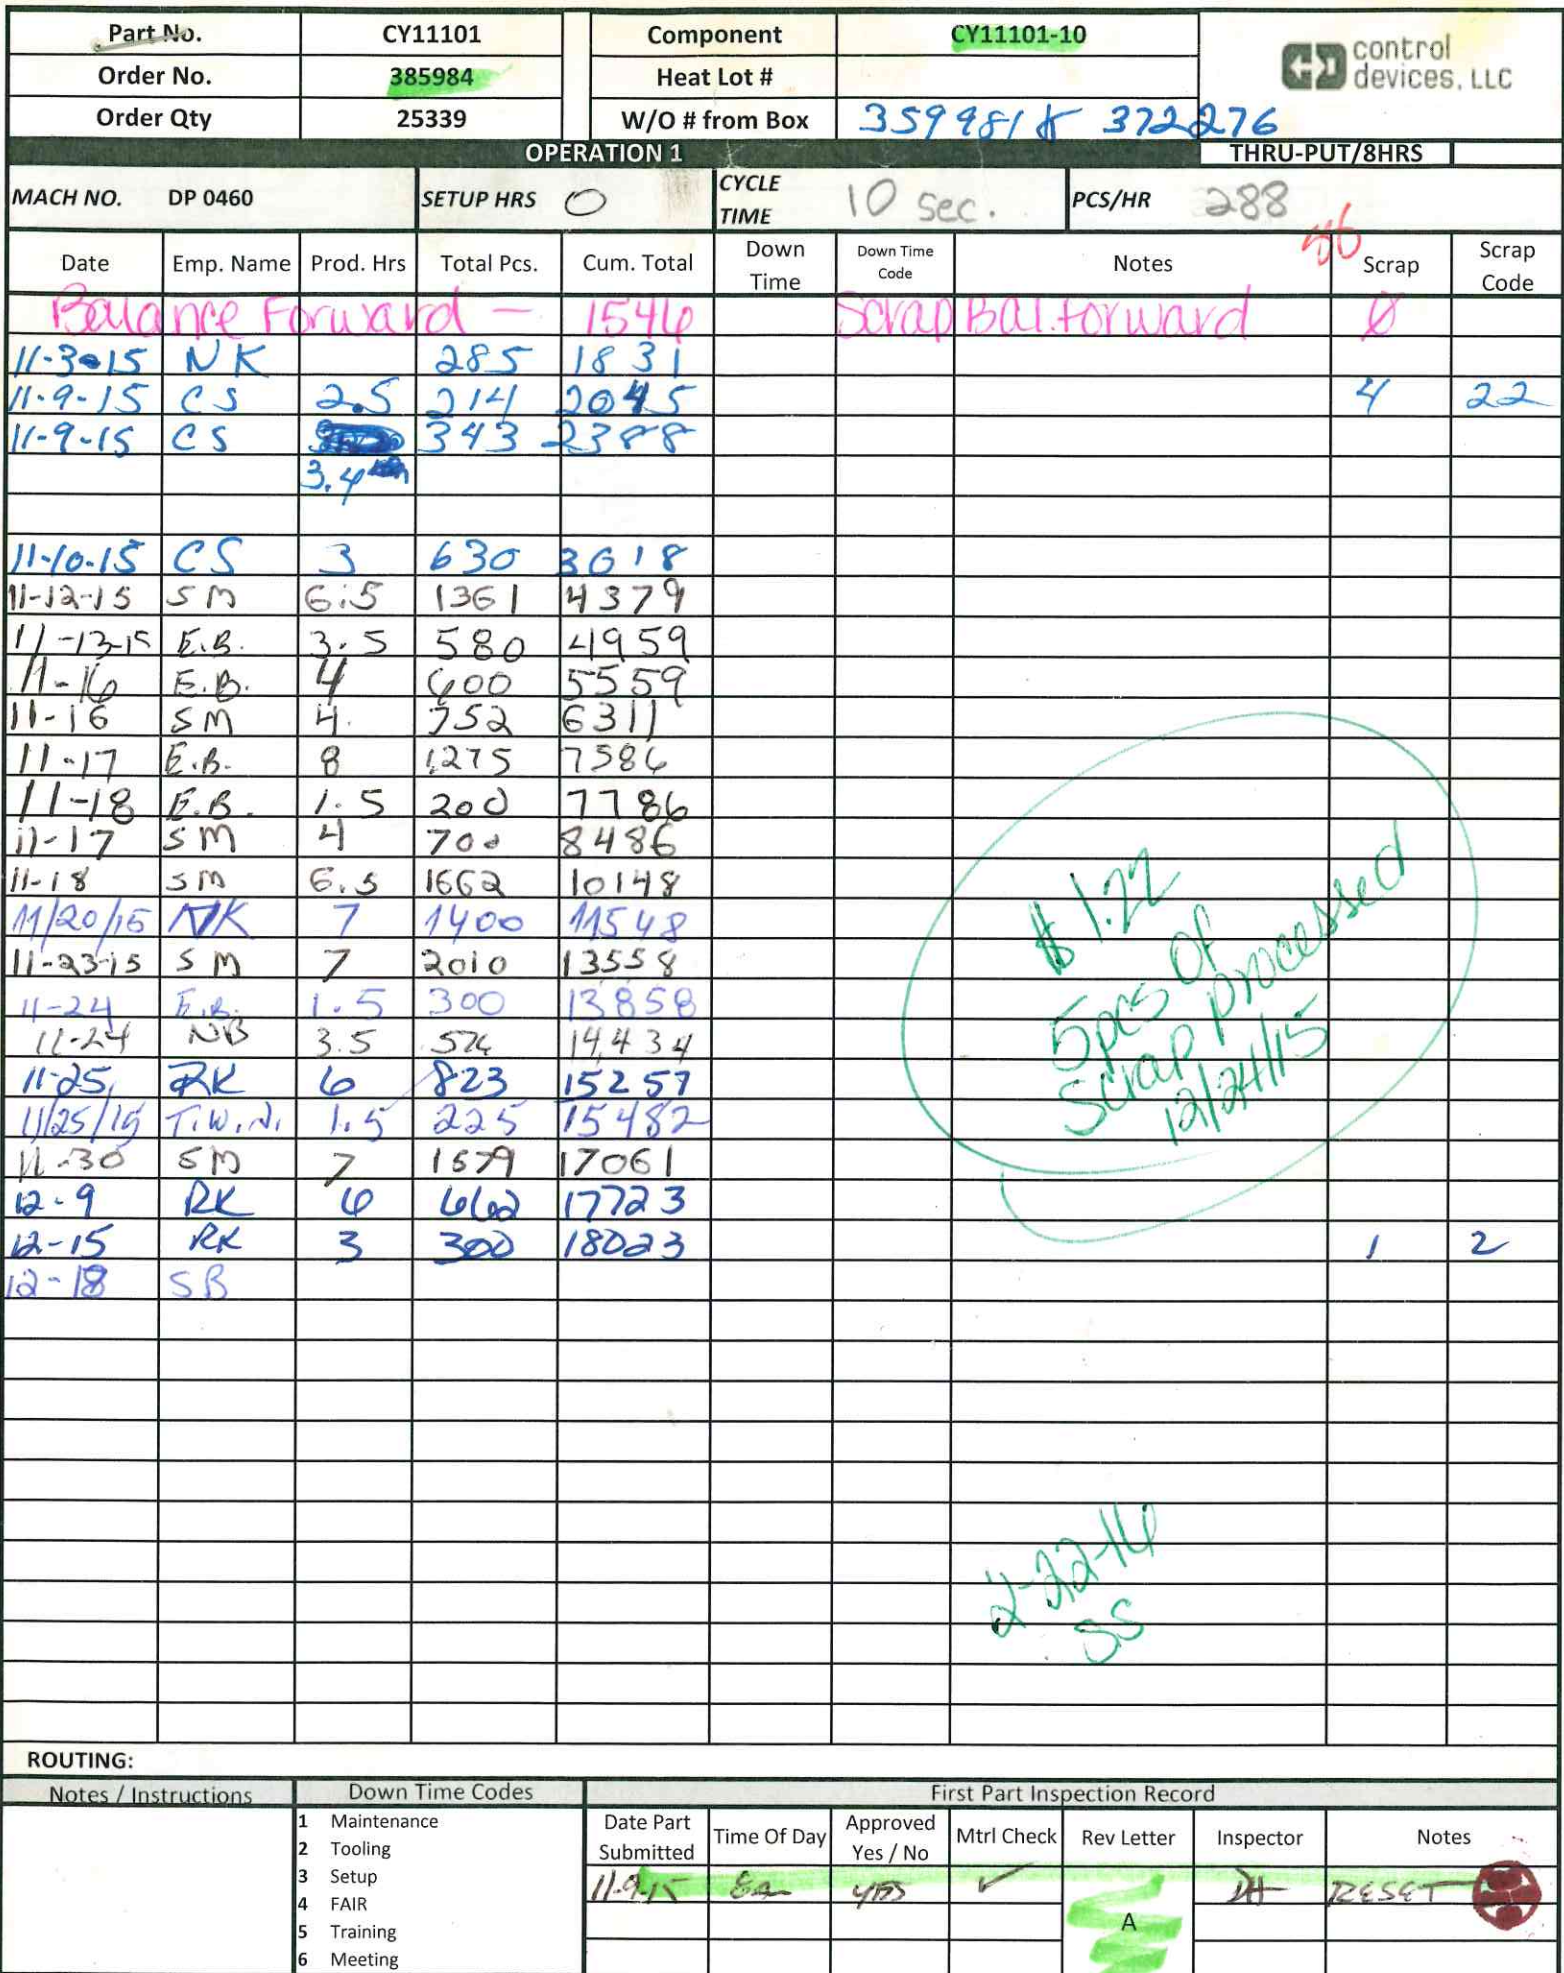 Part No. CY11101 Component CY11101-10 control devices, LLC
Order No. 385984 Heat Lot #
Order Qty 25339 W/O # from Box 359981 & 372276
OPERATION 1 THRU-PUT/8HRS
MACH NO. DP 0460 SETUP HRS 0 CYCLE TIME 10 sec. PCS/HR 288
Date Emp. Name Prod. Hrs Total Pcs. Cum. Total Down Time Down Time Code Notes Scrap Scrap Code
Balance Forward - 1546 Scrap Bal. forward 0
11-3-15 NK 285 1831
11-9-15 CS 2.5 214 2045 4 22
11-9-15 CS 343 2388
3.4
11-10-15 CS 3 630 3018
11-12-15 SM 6.5 1361 4379
11-13-15 E.B. 3.5 580 4959
11-16 E.B. 4 600 5559
11-16 SM 4. 752 6311
11-17 E.B. 8 1275 7586
11-18 E.B. 1.5 200 7786
11-17 SM 4 700 8486
11-18 SM 6.5 1662 10148
11/20/15 NK 7 1400 11548
11-23-15 SM 7 2010 13558
11-24 E.B. 1.5 300 13858
11-24 NB 3.5 576 14,434
11-25 RK 6 823 15257
11/25/15 T.W.N. 1.5 225 15482
11-30 SM 7 1579 17061
12-9 RK 6 662 17723
12-15 RK 3 300 18023 1 2
12-18 SB
$1.22
5pcs of
scrap processed
12/24/15
2-22-16
SS
ROUTING:
Notes / Instructions Down Time Codes First Part Inspection Record
1 Maintenance
2 Tooling
3 Setup
4 FAIR
5 Training
6 Meeting
Date Part Submitted Time Of Day Approved Yes / No Mtrl Check Rev Letter Inspector Notes
11-9-15 YES ✓ A DH RESET